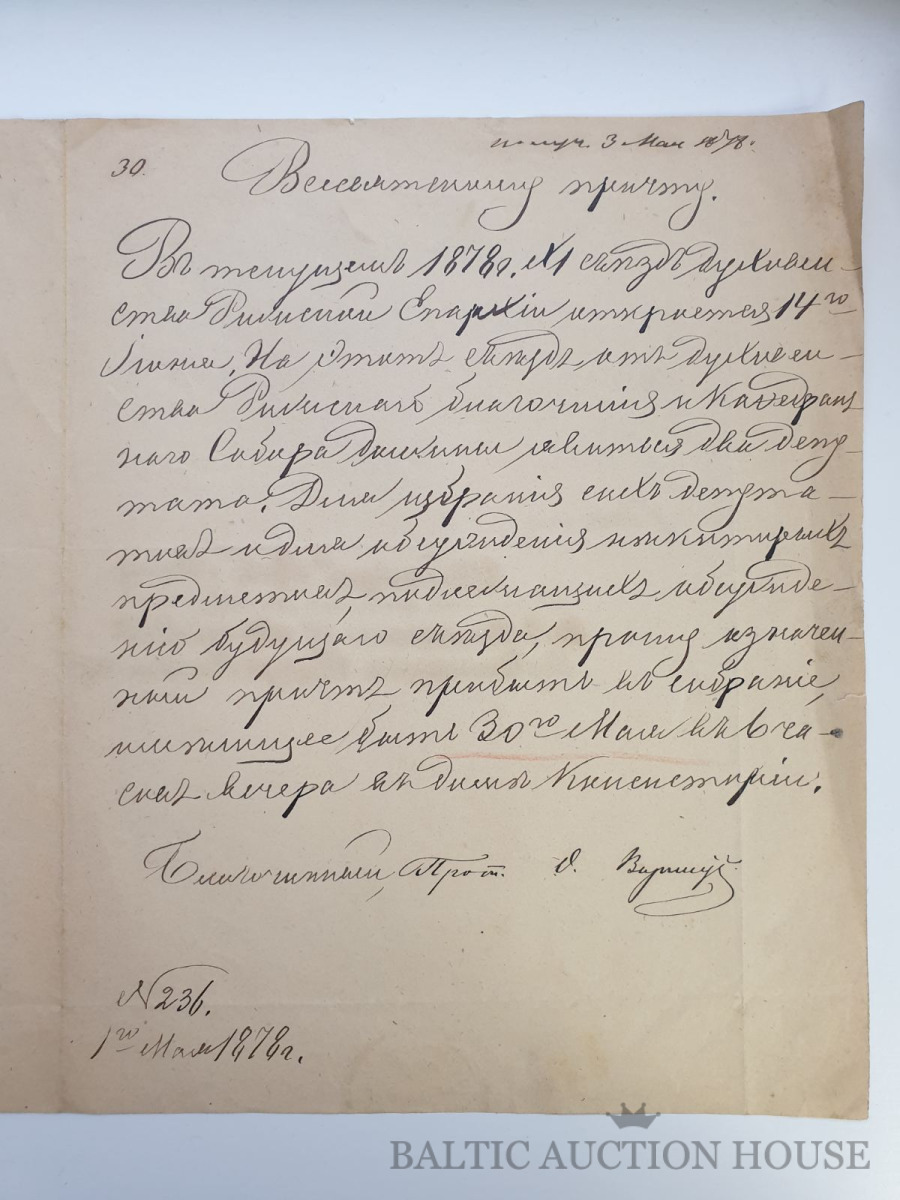 30.
получ. 3 Мая 1878.
Всесвятскому причту.
Въ текущемъ 1878 г. XI съѣздъ духовен-
ства Рижской Епархіи откроется 14го
Іюня. На этотъ съѣздъ отъ духовен-
ства Рижскаго благочинія и Каѳедраль-
наго Собора должны явиться два депу-
тата. Для избранія сихъ депута-
товъ и для обсужденія нѣкоторыхъ
предметовъ, подлежащихъ обсужде-
нію будущаго съѣзда, прошу означен-
ный причтъ прибыть въ собраніе,
имѣющее быть 30го Мая въ 6 ча-
совъ вечера въ домѣ Консисторіи.
Благочинный, Прот.
№ 236.
1го Мая 1878 г.
BALTIC AUCTION HOUSE